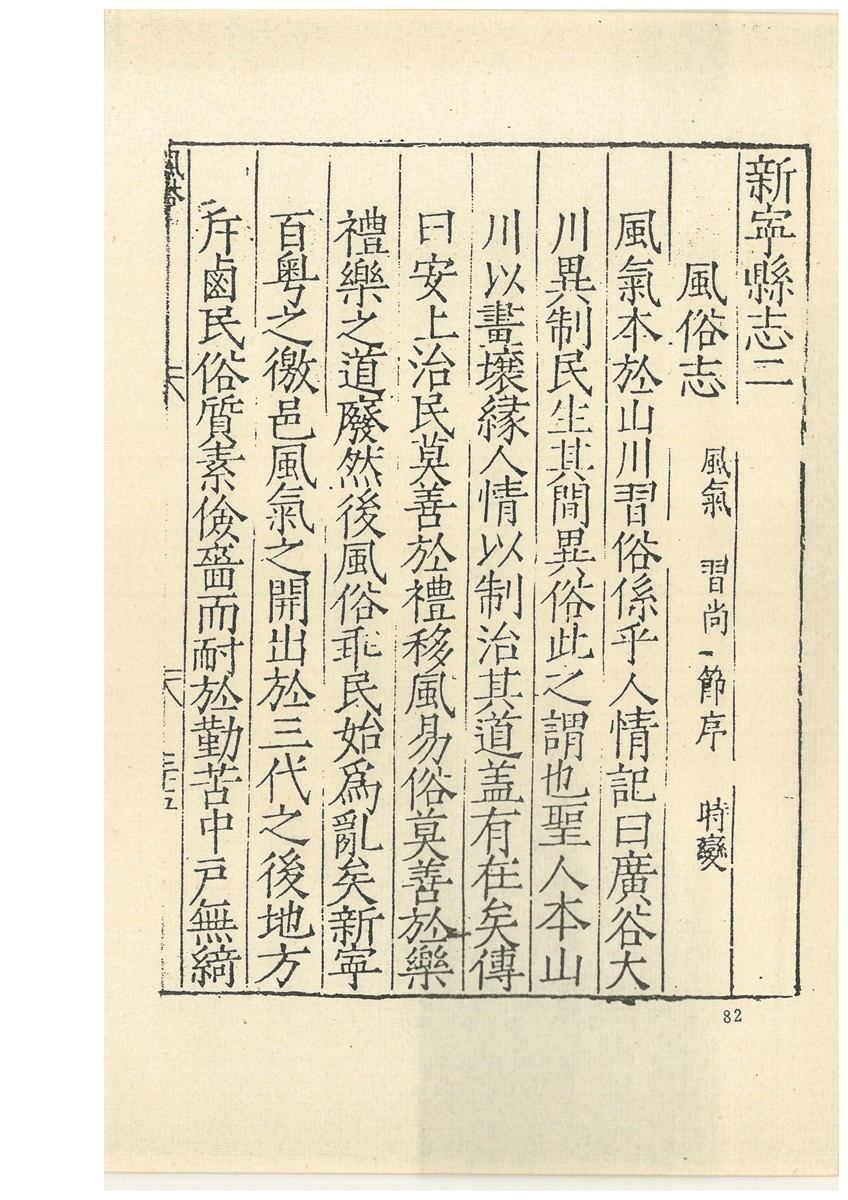 新寧縣志二
風俗志 風氣 習尚 節序 時變
風氣本於山川習俗係乎人情記曰廣谷大
川異制民生其間異俗此之謂也聖人本山
川以畫壤緣人情以制治其道盖有在矣傳
曰安上治民莫善於禮移風易俗莫善於樂
禮樂之道廢然後風俗乖民始爲亂矣新寧
百粤之徼邑風氣之開出於三代之後地方
斥鹵民俗質素儉嗇而耐於勤苦中戸無綺
風俗
三十五
82